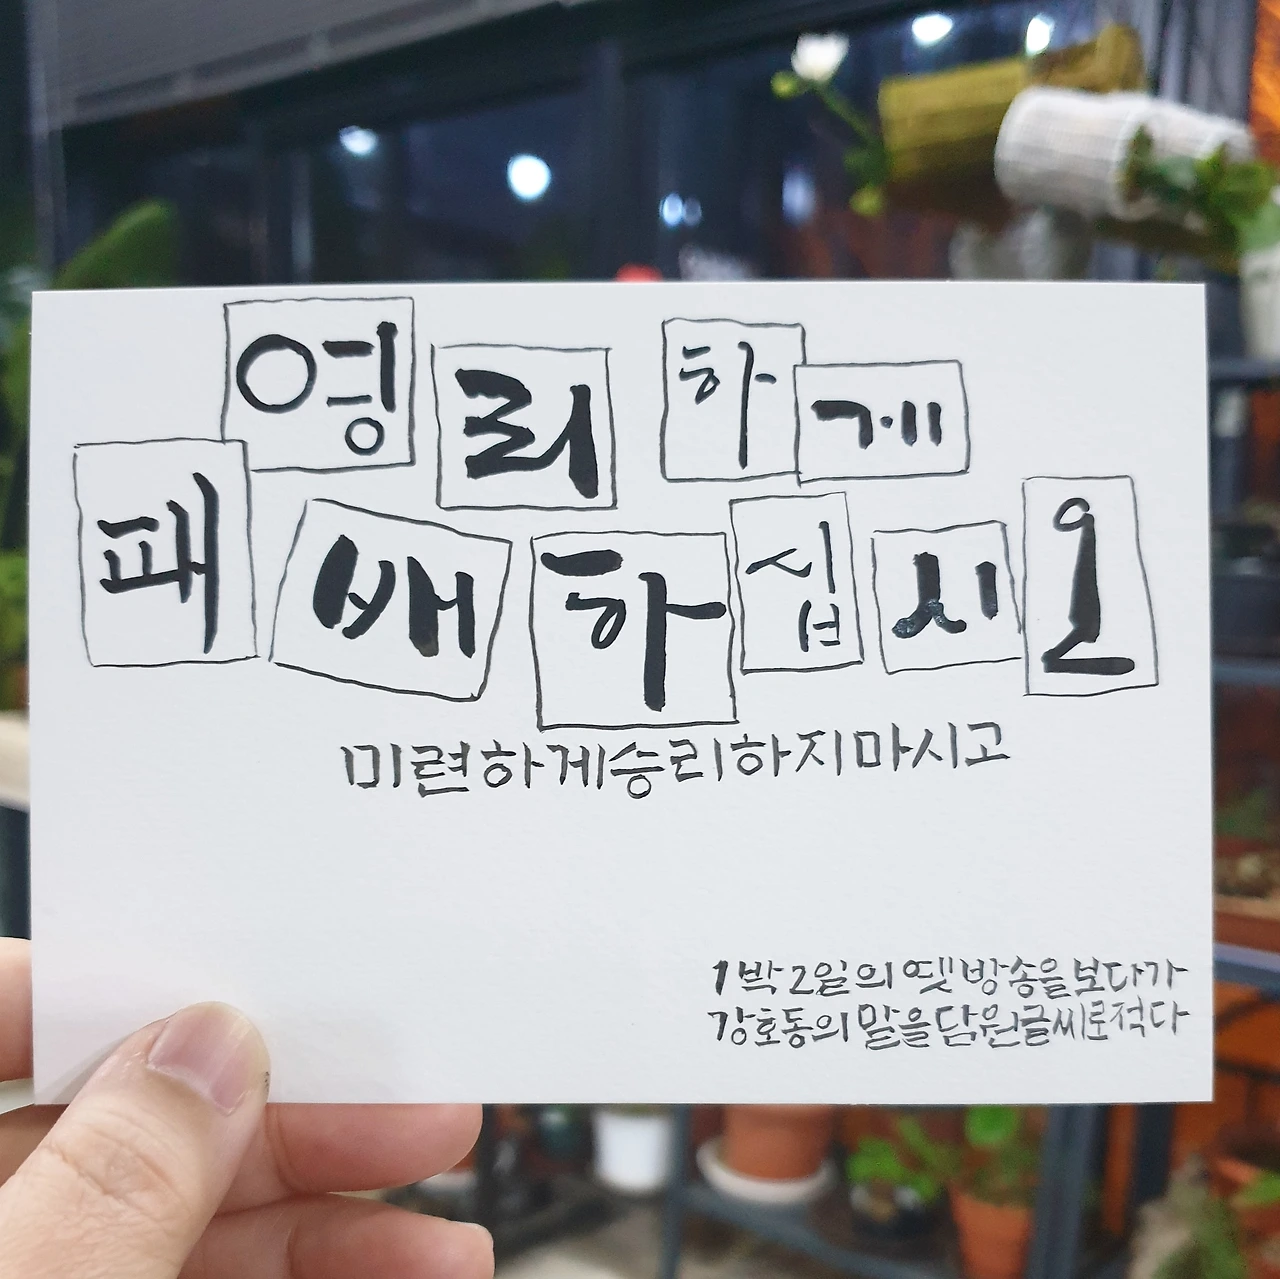 영리 하게
패배하십시오
미련하게승리하지마시고
1박2일의 옛방송을보다가
강호동의 말을담원글씨로적다